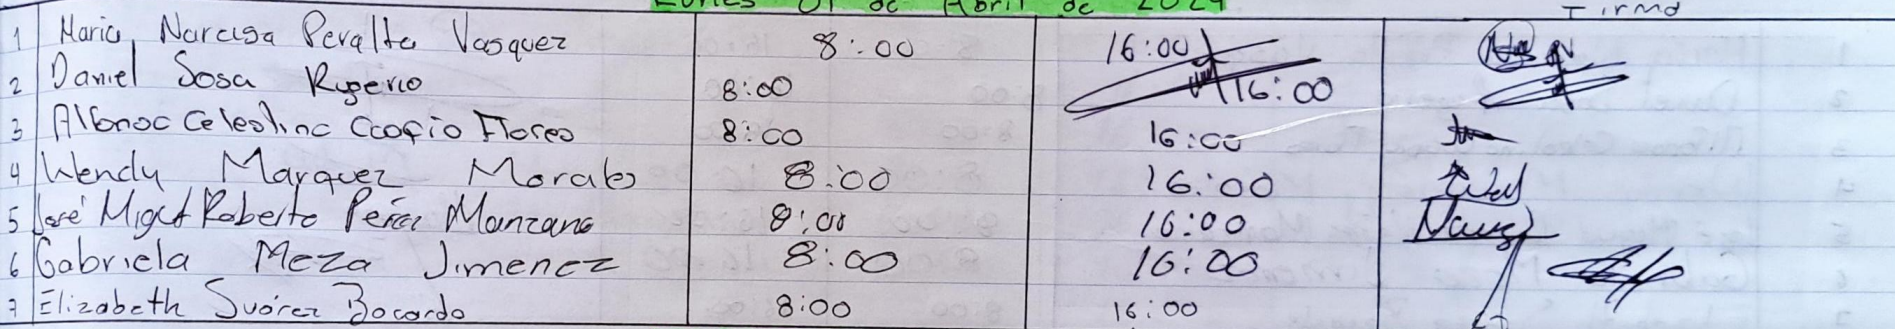 Lunes 01 de Abril de 2024 Firma
1 Maria Narcisa Peralta Vasquez 8:00 16:00
2 Daniel Sosa Rugerio 8:00 16:00
3 Alfonoc Celestino Flores 8:00 16:00
4 Wendy Marquez Morales 8:00 16:00
5 José Miguel Roberto Perez Manzano 8:00 16:00
6 Gabriela Meza Jimenez 8:00 16:00
7 Elizabeth Suárez Bocardo 8:00 16:00